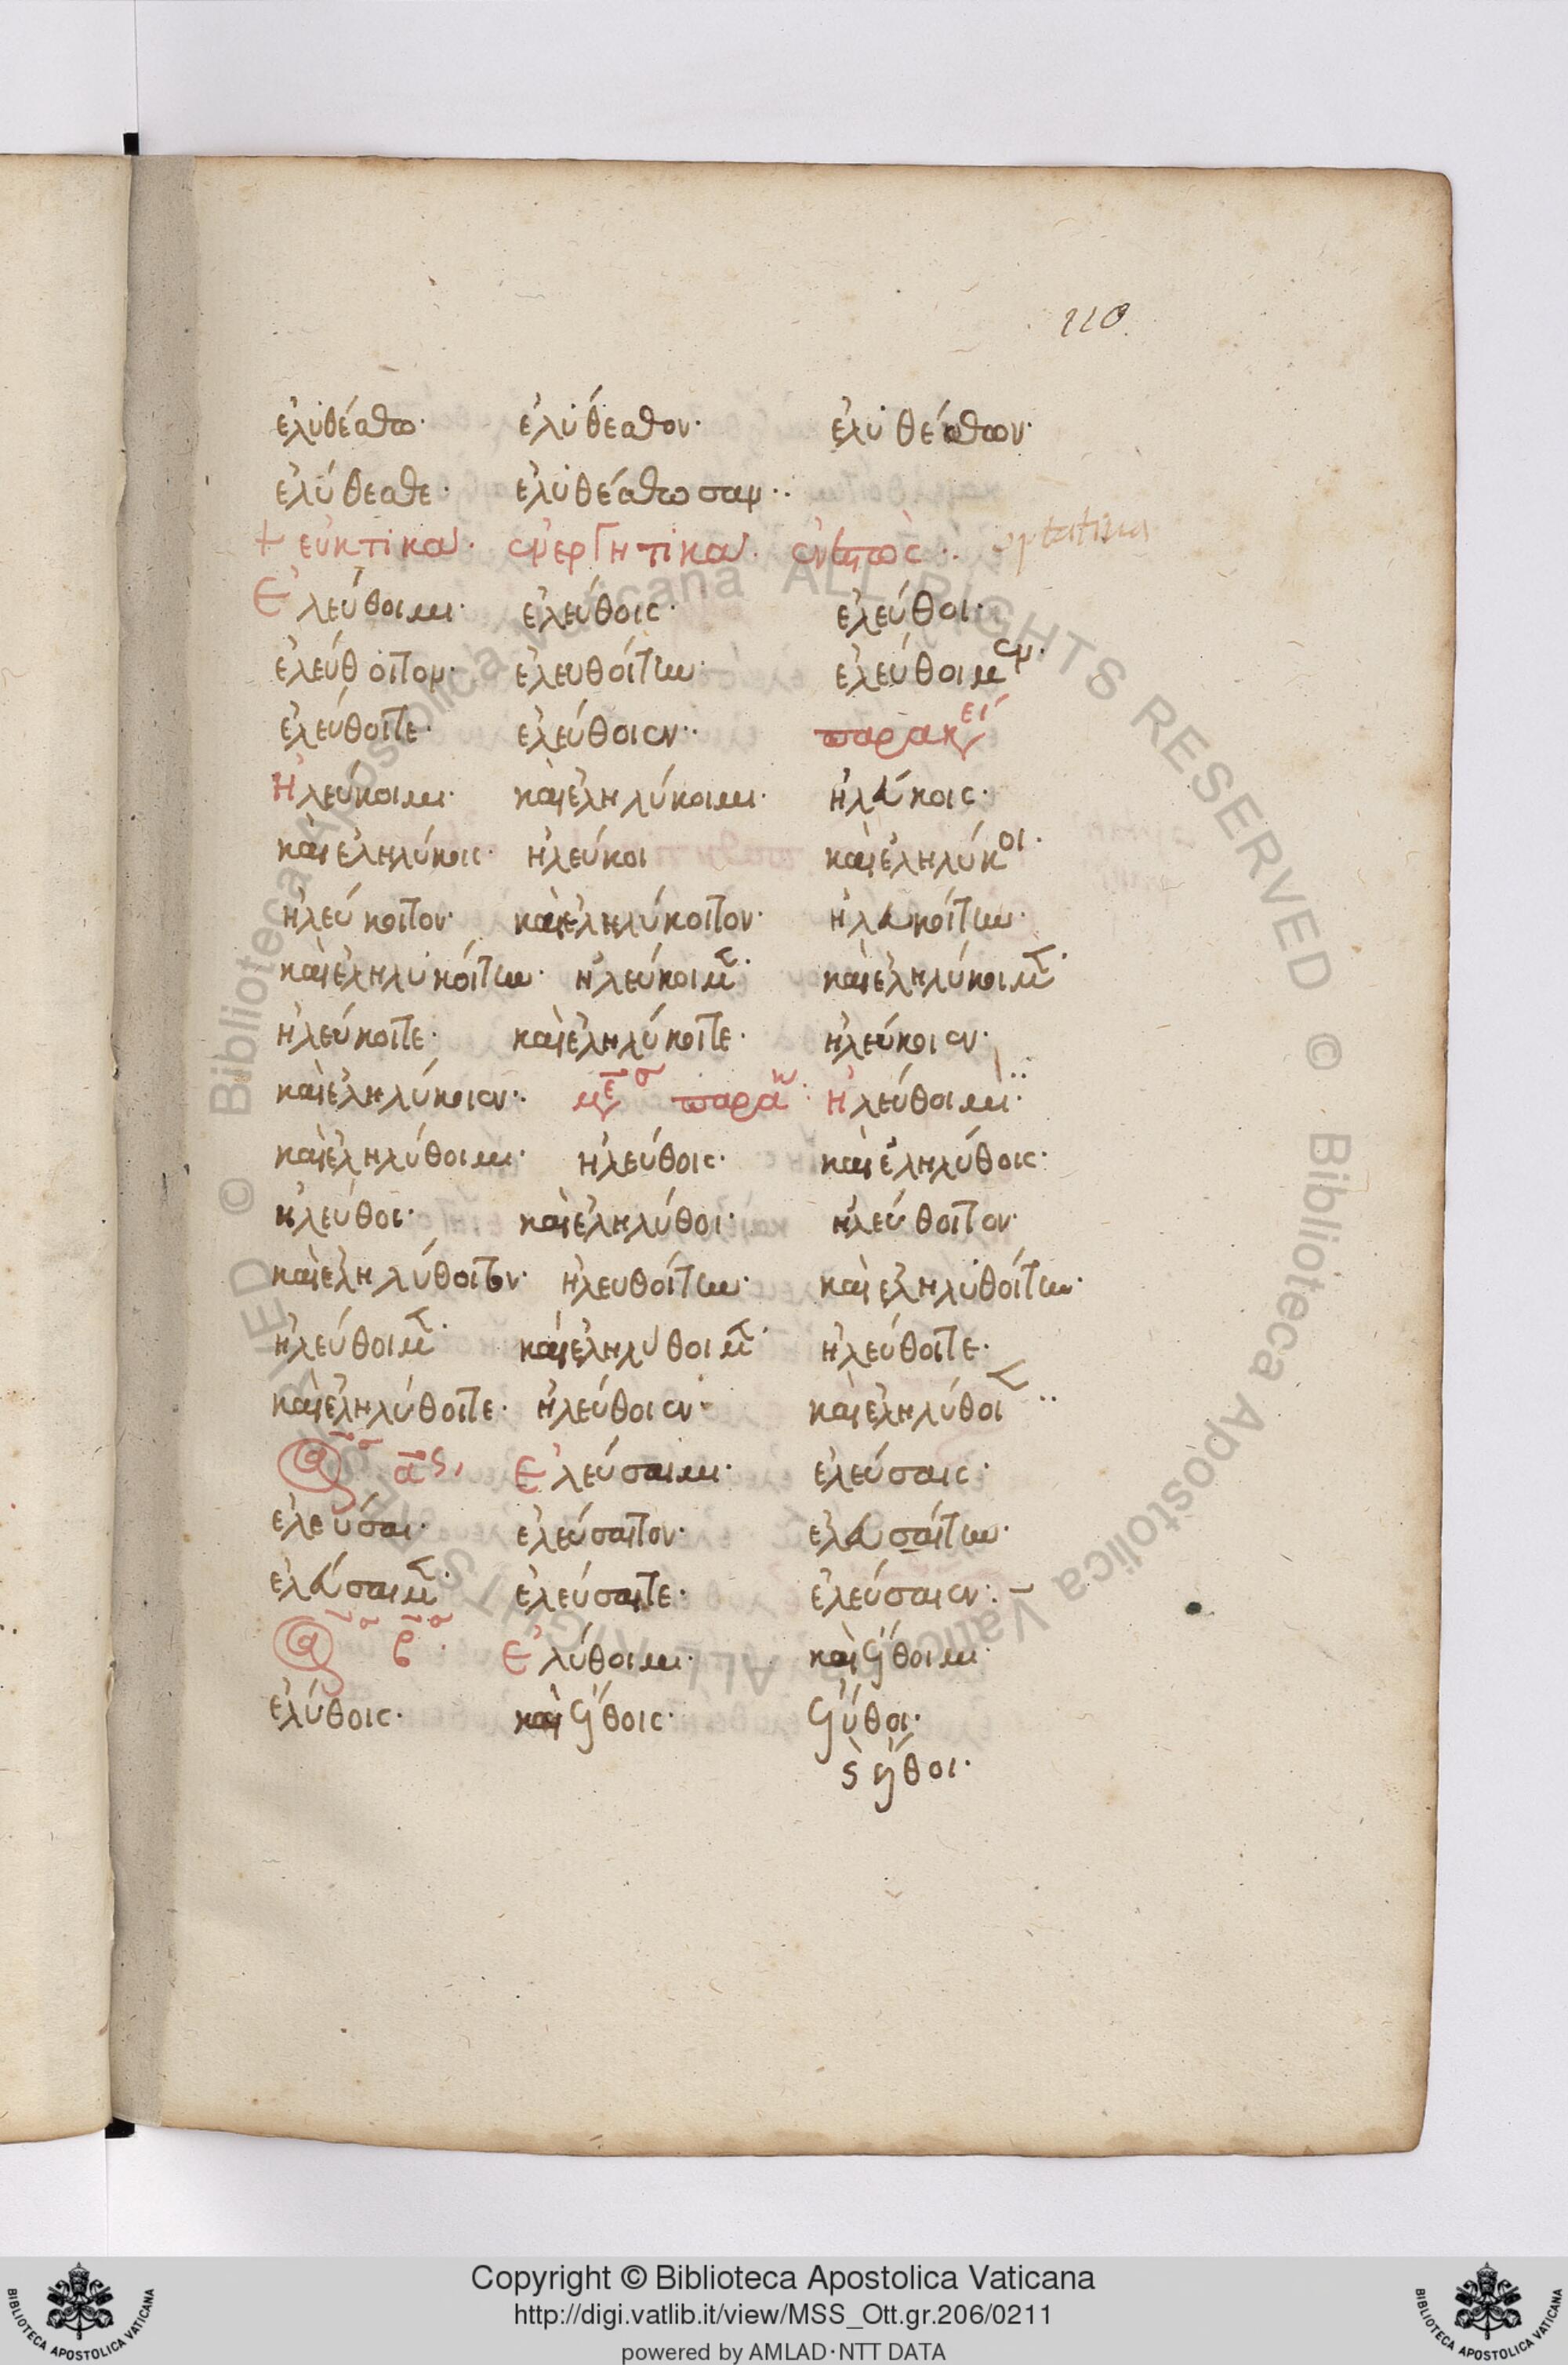 110
ἐλυθέσθω· ἐλύθεσθον· ἐλυθέσθων·
ἐλύθεσθε· ἐλυθέσθωσαν··
+ εὐκτικὰ· ἐνεργητικὰ· ἐνεστὼς·· optatiua
Ἐλεύθοιμι· ἐλεύθοις· ἐλεύθοι·
ἐλεύθοιτον· ἐλευθοίτην· ἐλεύθοιμεν·
ἐλεύθοιτε· ἐλεύθοιεν·· παρακει
Ἠλεύκοιμι· καὶ ἐληλύκοιμι· ἠλεύκοις·
καὶ ἐληλύκοις· ἠλεύκοι καὶ ἐληλύκοι·
ἠλεύκοιτον· καὶ ἐληλύκοιτον· ἠλευκοίτην·
καὶ ἐληλυκοίτην· ἠλεύκοιμε· καὶ ἐληλύκοιμε·
ἠλεύκοιτε· καὶ ἐληλύκοιτε· ἠλεύκοιεν·
καὶ ἐληλύκοιεν·· μεσ παρακ: Ἠλεύθοιμι··
καὶ ἐληλύθοιμι· ἠλεύθοις· καὶ ἐληλύθοις·
ἠλεύθοι· καὶ ἐληλύθοι· ἠλεύθοιτον·
καὶ ἐληλύθοιτον· ἠλευθοίτην· καὶ ἐληλυθοίτην·
ἠλεύθοιμε· καὶ ἐληλύθοιμε· ἠλεύθοιτε·
καὶ ἐληλύθοιτε· ἠλεύθοιεν· καὶ ἐληλύθοιεν··
ας, Ἐλεύσαιμι· ἐλεύσαις·
ἐλεύσαι· ἐλεύσαιτον· ἐλευσαίτην·
ἐλεύσαιμε· ἐλεύσαιτε· ἐλεύσαιεν:–
β· Ἐλύθοιμι· καὶ ἔλθοιμι·
ἐλύθοις· καὶ ἔλθοις· ἐλύθοι·
ϛ ἔλθοι·
Copyright © Biblioteca Apostolica Vaticana
http://digi.vatlib.it/view/MSS_Ott.gr.206/0211
powered by AMLAD·NTT DATA
BIBLIOTECA APOSTOLICA VATICANA
BIBLIOTECA APOSTOLICA VATICANA
© Biblioteca Apostolica Vaticana ALL RIGHTS RESERVED
© Biblioteca Apostolica Vaticana ALL RIGHTS RESERVED